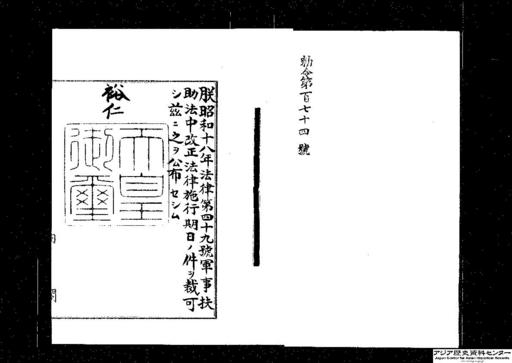 勅令第百七十四號
朕昭和十八年法律第四十九號軍事扶
助法中改正法律施行期日ノ件ヲ裁可
シ茲ニ之ヲ公布セシム
裕仁
天皇
御璽
内
閣
アジア歴史資料センター
Japan Center for Asian Historical Records